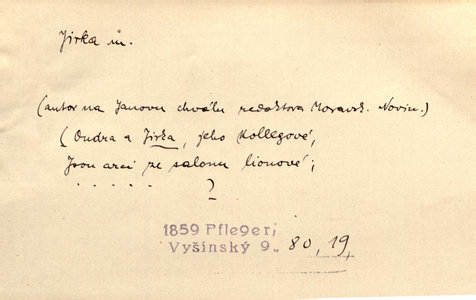 Jirka m.
(autor na Janovu chválu redaktora Moravsk. Novin.)
(Ondra a Jirka, jeho Kollegové,
Jsou arci ze salonu lionové;
. . . . . ?
1859 Pfleger,
Vyšínský 9„ 80, 19